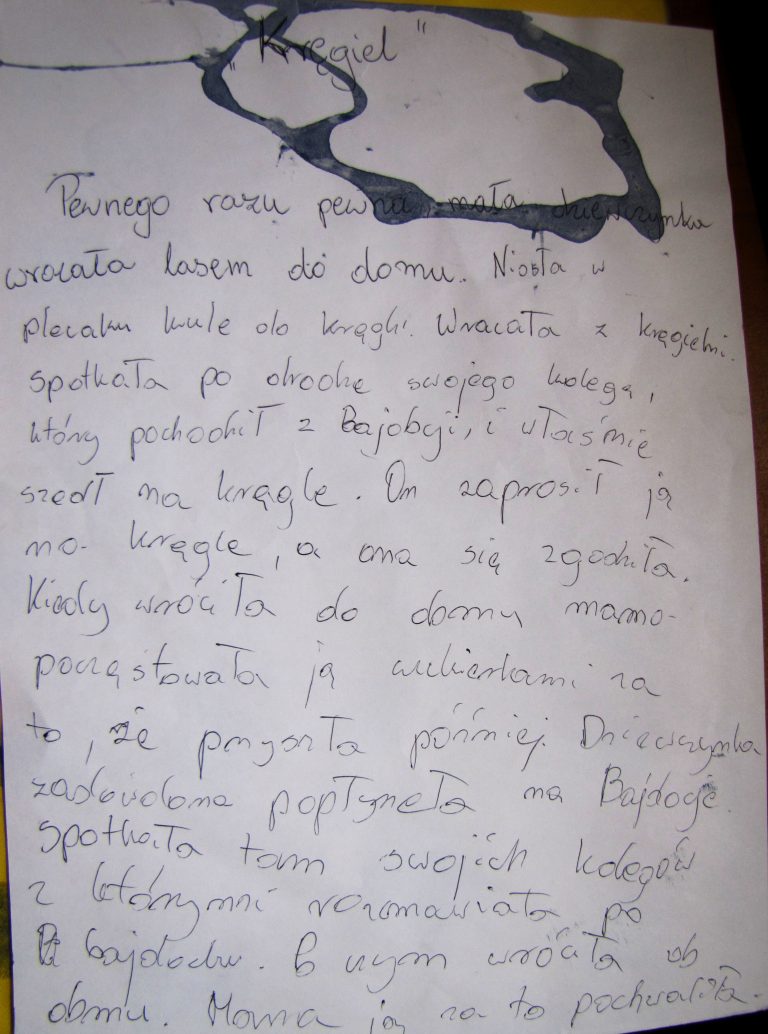 "Kręgiel"
Pewnego razu pewna mała dziewczynka
wracała lasem do domu. Niosła w
plecaku kule do kręgli. Wracała z kręgielni.
Spotkała po drodze swojego kolegę,
który pochodził z Bajobji, i właśnie
szedł na kręgle. On zaprosił ją
na kręgle, a ona się zgodziła.
Kiedy wróciła do domu mama
poczęstowała ją cukierkami za
to, że przyszła później. Dziewczynka
zadowolona popłyneła na Bajdocje.
Spotkała tam swojich kolegów
z którymni rozmawiała po
bajdocku. Po czym wróciła do
domu. Mama ją za to pochwaliła.